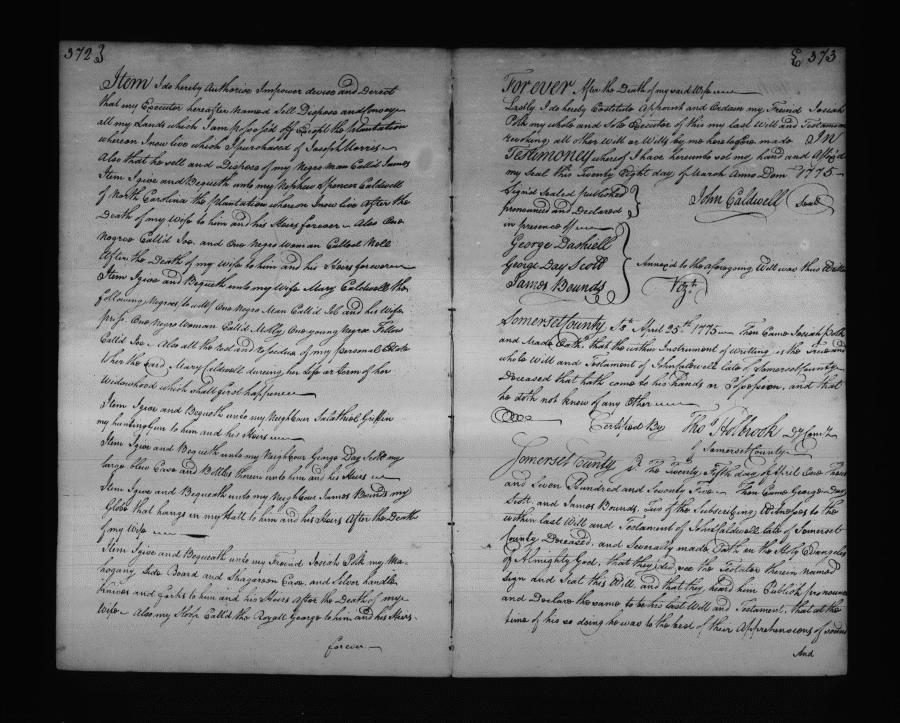 372}
Item I do hereby Authorize Impower devise and Derect
that my Executor hereafter Named Sell Dispose and Convey
all my Lands which I am Possessd off Except the Plantation
whereon I now live which I purchased of Joseph Morris
Also that he sell and Dispose of my Negro Man Calld James
Item I give and Bequeth unto my Nephew Spencer Caldwell
of North Carolina the plantation whereon I now live After the
Death of my Wife to him and his Heirs forever Also One
Negroe Call'd Joe, and One Negro Woman Called Nell
After the Death of my Wife to him and his Heirs forever
Item I give and Bequeth unto my Wife Mary Caldwell the
following Negroes, to witt, One Negro Man Call'd Job and his Wife
One Negro Woman Calld Molley One young Negro Fellow
Calld Joe Also all the rest and residue of my personal Estate
to her the said Mary Caldwell dureing her Life or term of her
Widowhood which shall first happen
Item I give and Bequeth unto my Neighbour Salathiel Griffin
my hunting Gun to him and his Heirs
Item I give and Bequeth unto my Neighbour George Day Scott my
large blew Case and Bottles therein unto him and his Heirs
Item I give and Bequeath unto my Neighbour James Bounds my
Globe that hangs in my Hall to him and his Heirs After the Death
of my Wife
Item I give and Bequeath unto my Freind Josiah Polk my Ma-
hogany Side Board and Shagareen Case, and Silver handled
knives and forks to him and his Heirs after the Death of my
Wife Also my Horse Calld the Royall George to him and his Heirs
forever
{373
Forever After the Death of my said Wife
Lastly I do hereby Constitute Appoint and Ordain my Freind Josiah
Polk my whole and Sole Executor of this my last Will and Testament
revoking all other Will or Wills by me heretofore made IN
Testimoney whereof I have hereunto set my hand and Affix'd
my Seal this Twenty Eight day of March Anno Dom 1775
Sign'd Sealed published
pronounced and Declared
in presence off
John Caldwell Seal
George Dashiell
George Day Scott
James Bounds
Annex'd to the aforegoing Will was this
Vizt
Somerset County Ss April 25th 1775 Then Came Josiah Polk
and Made Oath, that the within Instrument of Writing is the True and
whole Will and Testament of John Caldwell late of Somerset County
Deceased that hath come to his hands or Possession, and that
he doth not know of any Other
Certified By Thos Holbrook Dy Comry
of Somerset County
Somerset County Ss The Twenty Fifth day of April One Thous
and Seven Hundred and Seventy Five Then Came George Day
Scott, and James Bounds, Two of the Subscribing Witnesses to The
within last Will and Testament of John Caldwell late of Somerset
County Deceased, and Severally made Oath on the Holy Evangeles
of Almighty God, that they did see the Testator therein named
Sign and Seal this Will, and that they heard him Publish pronounce
and Declare the same to be his last Will and Testament, that at the
time of his so doing he was to the best of their Apprehensions of sound
And